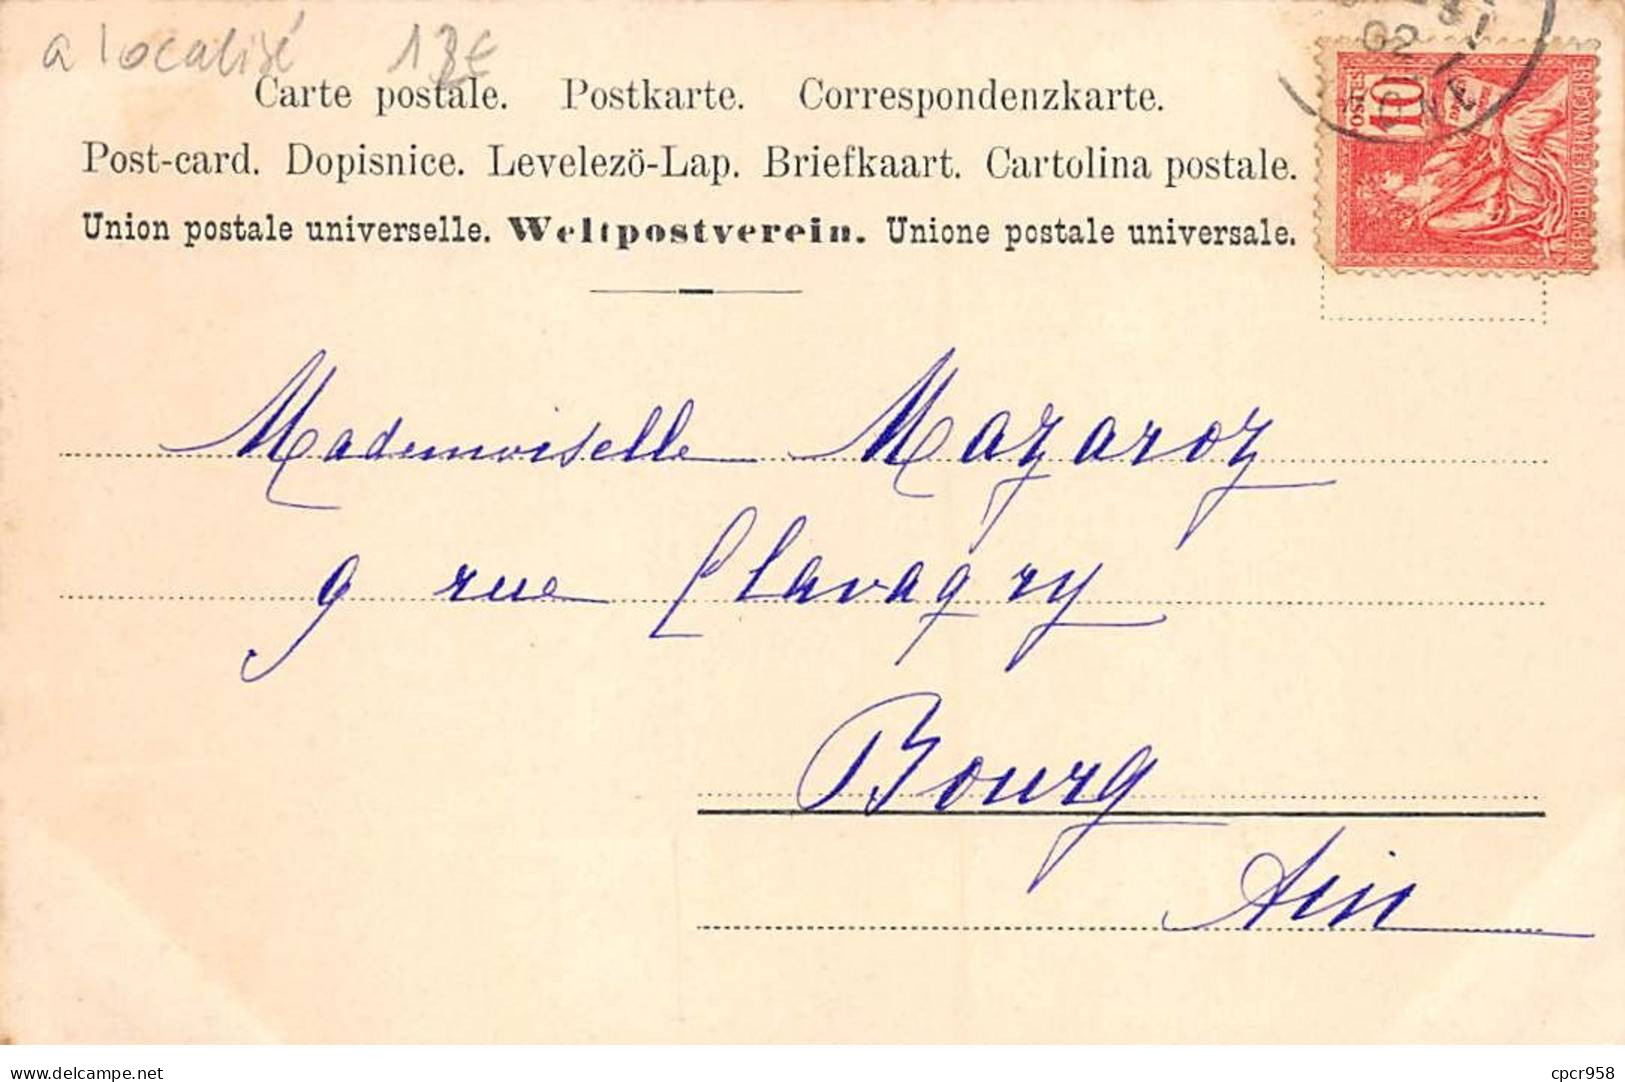 a localisé 18€
Carte postale. Postkarte. Correspondenzkarte.
Post-card. Dopisnice. Levelezö-Lap. Briefkaart. Cartolina postale.
Union postale universelle. Weltpostverein. Unione postale universale.
02
POSTES
10
REPVBLIQVE FRANCAISE
Mademoiselle Mazaroz
9 rue Clavagry
Bourg
Ain
https://www.delcampe.net
cpcr958